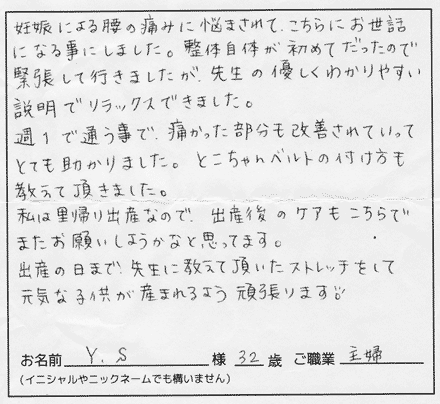 妊娠による腰の痛みに悩まされて、こちらにお世話
になる事にしました。整体自体が初めてだったので
緊張して行きましたが、先生の優しくわかりやすい
説明でリラックスできました。
週1で通う事で、痛かった部分も改善されていって
とても助かりました。とこちゃんベルトの付け方も
教えて頂きました。
私は里帰り出産なので、出産後のケアもこちらで
またお願いしようかなと思ってます。
出産の日まで、先生に教えて頂いたストレッチをして
元気な子供が産まれるよう頑張ります
お名前 Y.S 様 32 歳 ご職業 主婦
(イニシャルやニックネームでも構いません)